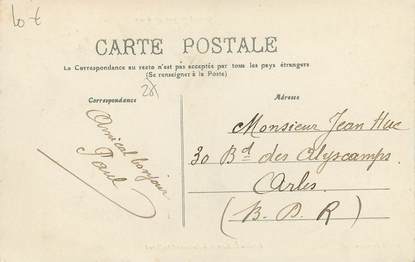 Lot
CARTE POSTALE
La Correspondance au recto n'est pas acceptée par tous les pays étrangers
(Se renseigner à la Poste)
Correspondance
Amical bonjour
Paul
Adresse
Monsieur Jean Huc
30 Bd des Alyscamps.
Arles.
(B. D. R)